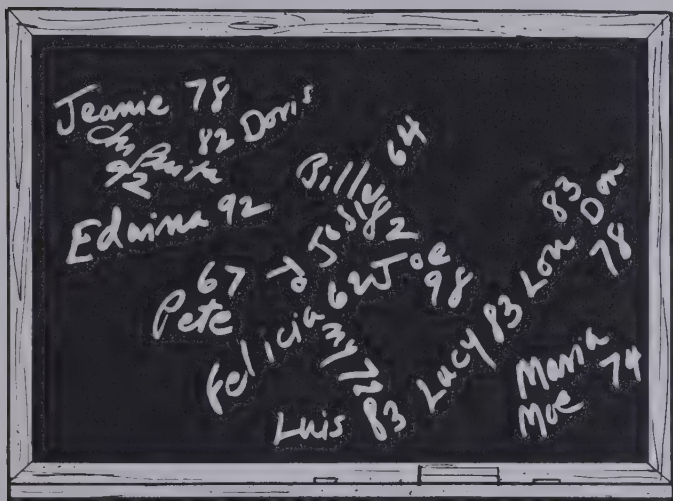 Jeanie 78
82 Doris
92
Edwina 92
Billy 64
Josi 82
67
Pete
Joe
98
Felicia 62
Tony 72
Luis 83
Lucy 83
Lou 83
Don
78
Maria
Moe 74